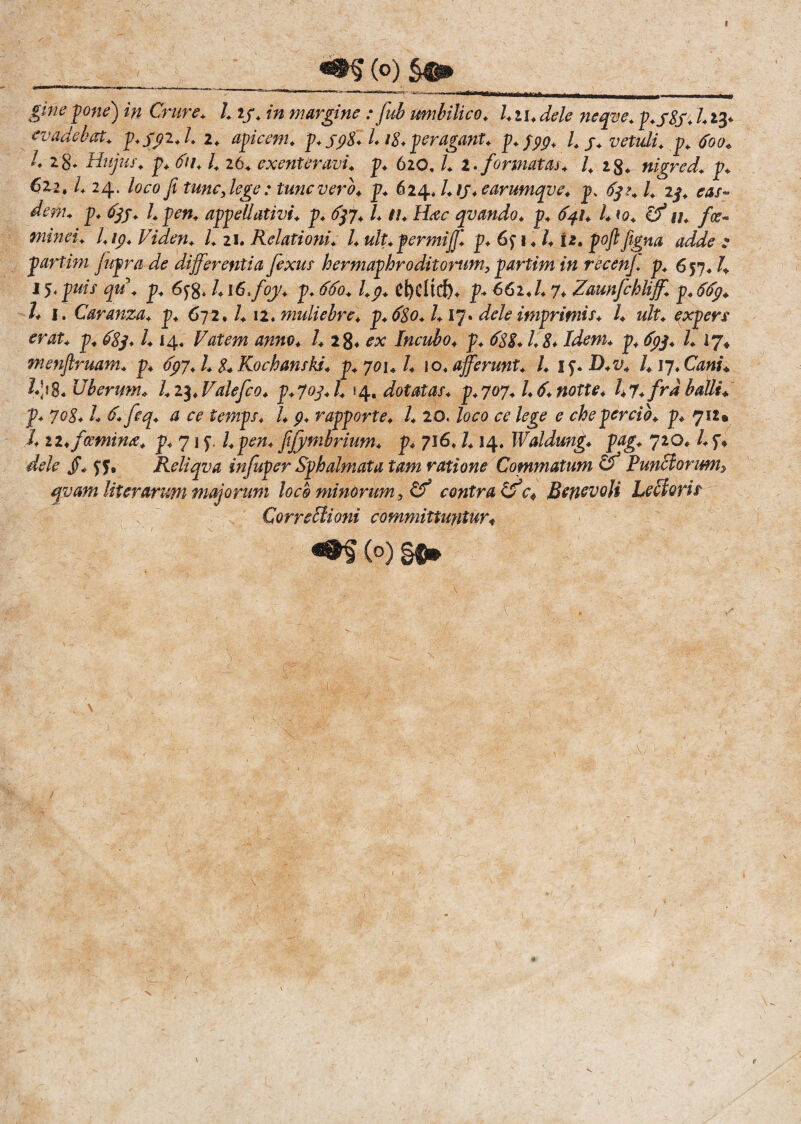 (o)
gine pone) in Crure. l. 15. in margine : ſub umbilico. l. 21. dele neqve. p. 585. l. 23.
evadebat. p. 592. l. 2. apicem. p. 598. l. 18. peragant. p. 599. l. 5. vetuli. p. 600.
l. 28. Hujus. p. 611. l. 26. exenteravi. p. 620. l. 2. formatas. l. 28. nigred. p.
622. l. 24. loco ſi tunc, lege : tunc verò. p. 624. l. 15. earumqve. p. 632. l. 23. eas-
dem. p. 635. l. pen. appellativi. p. 637. l. 11. Hæc qvando. p. 641. l. 10. & 11. fœ-
minei. l. 19. Viden. l. 21. Relationi. l. ult. permiſſ. p. 651. l. 12. poſt ſigna adde :
partim ſupra de differentia ſexus hermaphroditorum, partim in recenſ. p. 657. l.
15. puis qu'. p. 658. l. 16. foy. p. 660. l. 9. Ehelich. p. 662. l. 7. Zaunſchliff. p. 669.
l. 1. Caranza. p. 672. l. 12. muliebre. p. 680. l. 17. dele imprimis. l. ult. expers
erat. p. 683. l. 14. Vatem anno. l. 28. ex Incubo. p. 688. l. 8. Idem. p. 693. l. 17.
menſtruam. p. 697. l. 8. Kochanski. p. 701. l. 10. afferunt. l. 15. D. v. l. 17. Cani.
l. 18. Uberum. l. 23. Valeſco. p. 703. l. 14. dotatas. p. 707. l. 6. notte. l. 7. frà balli.
p. 708. l. 6. ſeq. a ce temps. l. 9. rapporte. l. 20. loco ce lege e che perciò. p. 712.
l. 22. fœminæ. p. 715. l. pen. ſiſymbrium. p. 716. l. 14. Waldung. pag. 720. l. 5.
dele §. 55. Reliqva inſuper Sphalmata tam ratione Commatum & Punctorum,
qvam literarum majorum locò minorum, & contra &c. Benevoli Lectoris
Correctioni committuntur.
(o)